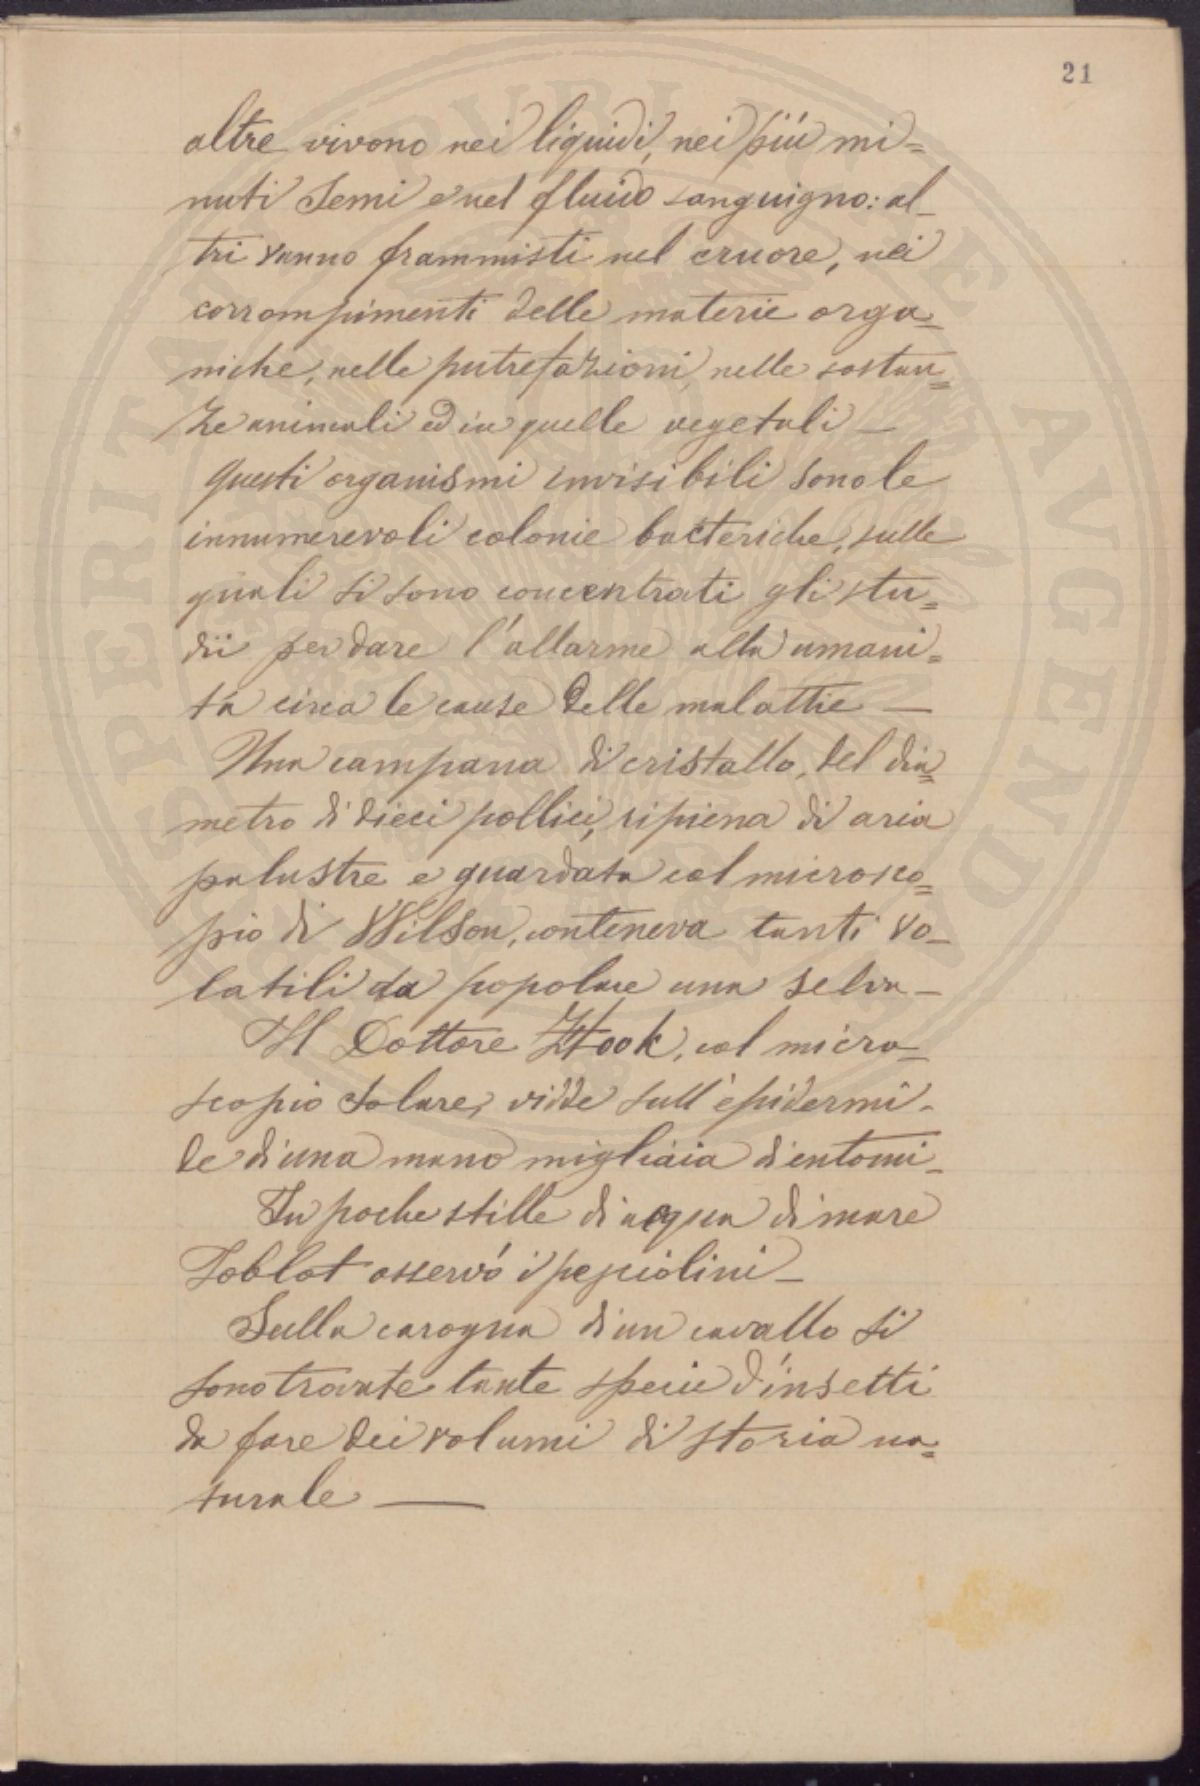 21
altre vivono nei liquidi, nei più mi=
nuti Semi e nel fluido sanguigno: al_
tri vanno frammisti nel cruore, nei
corrompimenti delle materie orga=
niche, nelle putrefazioni, nelle sostan=
ze animali ed in quelle vegetali —
Questi organismi invisibili sono le
innumerevoli colonie bacteriche, sulle
quali si sono concentrati gli stu=
dii per dare l'allarme alla umani=
tà circa le cause delle malattie —
Una campana di cristallo, del dia=
metro di dieci pollici, ripiena di aria
palustre e guardata col microsco=
pio di Wilson, conteneva tanti vo_
latili da popolare una selva —
Il Dottore Hook, col micro_
scopio solare, vidde sull'epidermi_
de di una mano migliaia di entomi_
In poche stille di acqua di mare
Joblot osservò i pesciolini —
Sulla carogna di un cavallo si
sono trovate tante specie d'insetti
da fare dei volumi di storia na=
turale —
PROSPERITATI PVBLICAE AVGENDAE